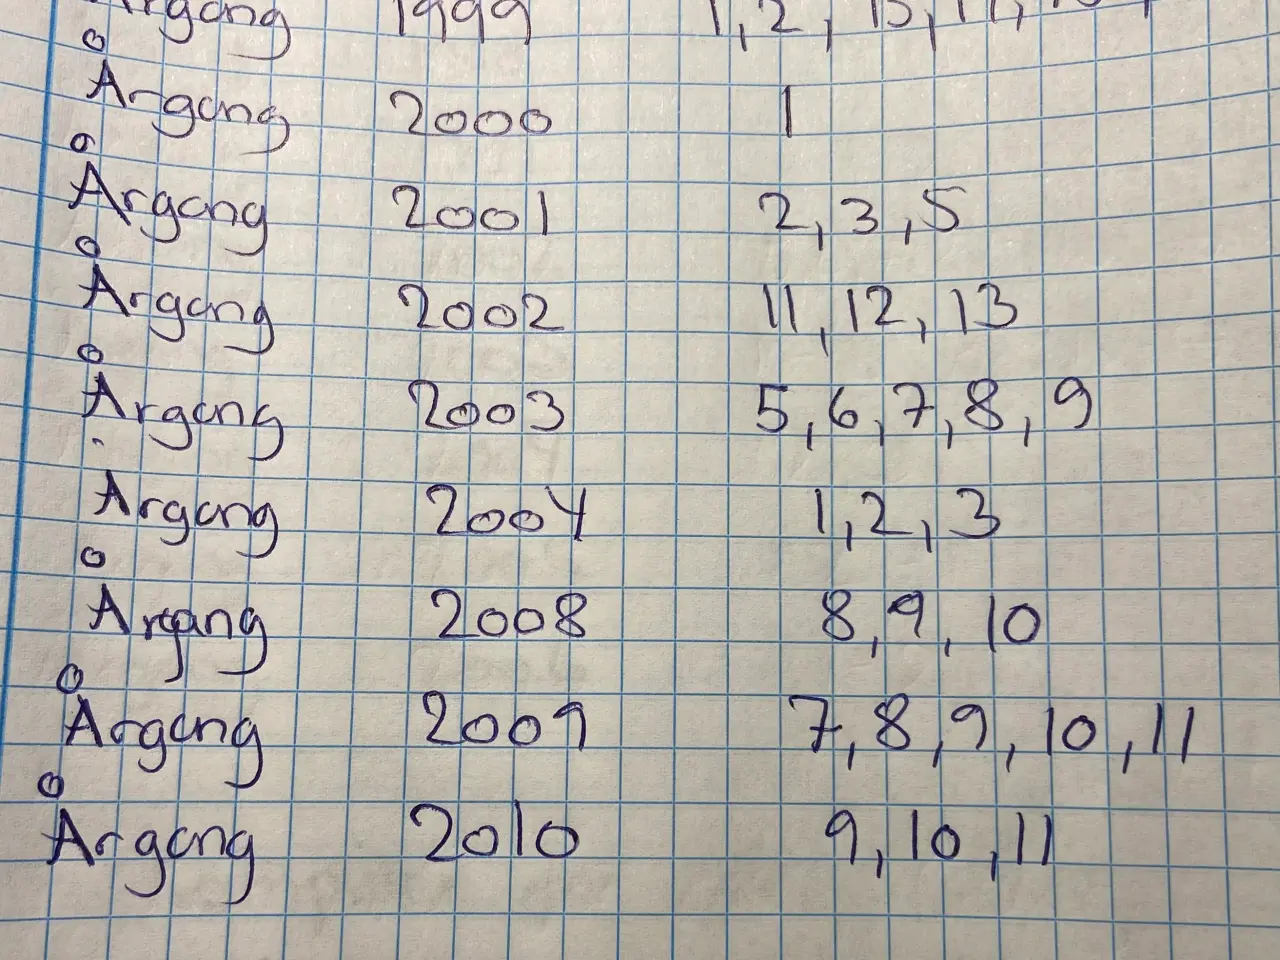 Årgång 1999 1, 2, 
Årgång 2000 1
Årgång 2001 2, 3, 5
Årgång 2002 11, 12, 13
Årgång 2003 5, 6, 7, 8, 9
Årgång 2004 1, 2, 3
Årgang 2008 8, 9, 10
Årgang 2009 7, 8, 9, 10, 11
Årgang 2010 9, 10, 11